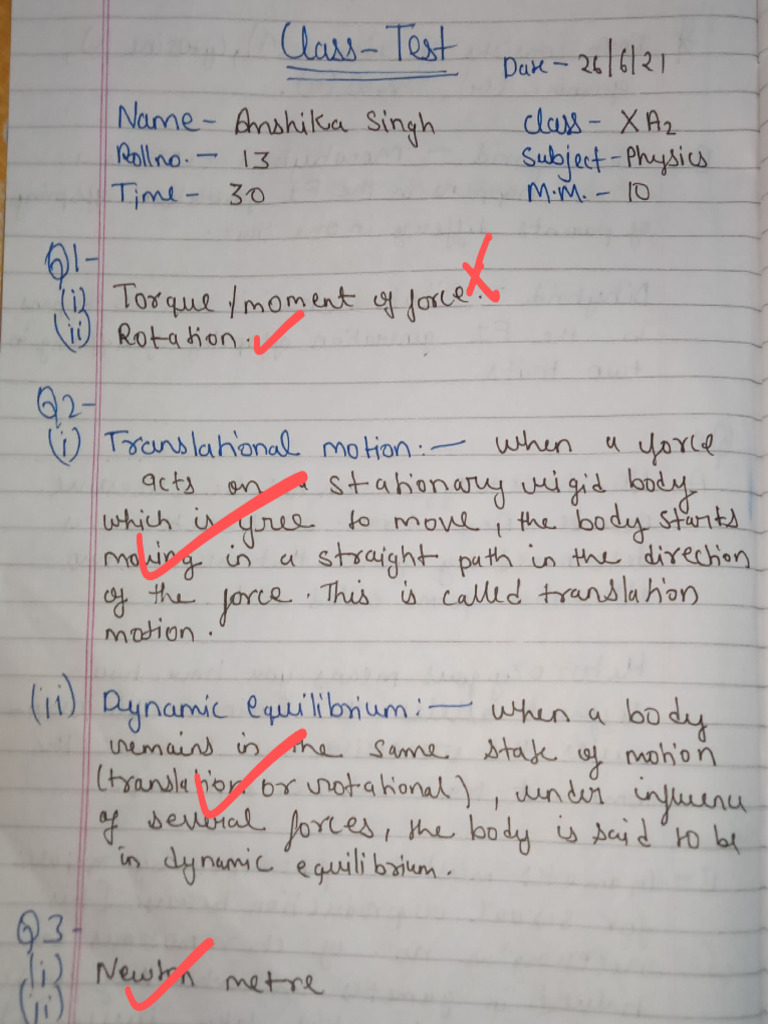 Class-Test
Date - 26/6/21
Name - Anshika Singh
class - X A2
Roll no. - 13
Subject - Physics
Time - 30
M.M. - 10
Q1-
(i) Torque / moment of force.
(ii) Rotation.
Q2-
(i) Translational motion:- when a force
acts on a stationary rigid body
which is free to move, the body starts
moving in a straight path in the direction
of the force. This is called translation
motion.
(ii) Dynamic equilibrium:- when a body
remains in the same state of motion
(translation or rotational), under influence
of several forces, the body is said to be
in dynamic equilibrium.
Q3-
(i) Newton metre
(ii)